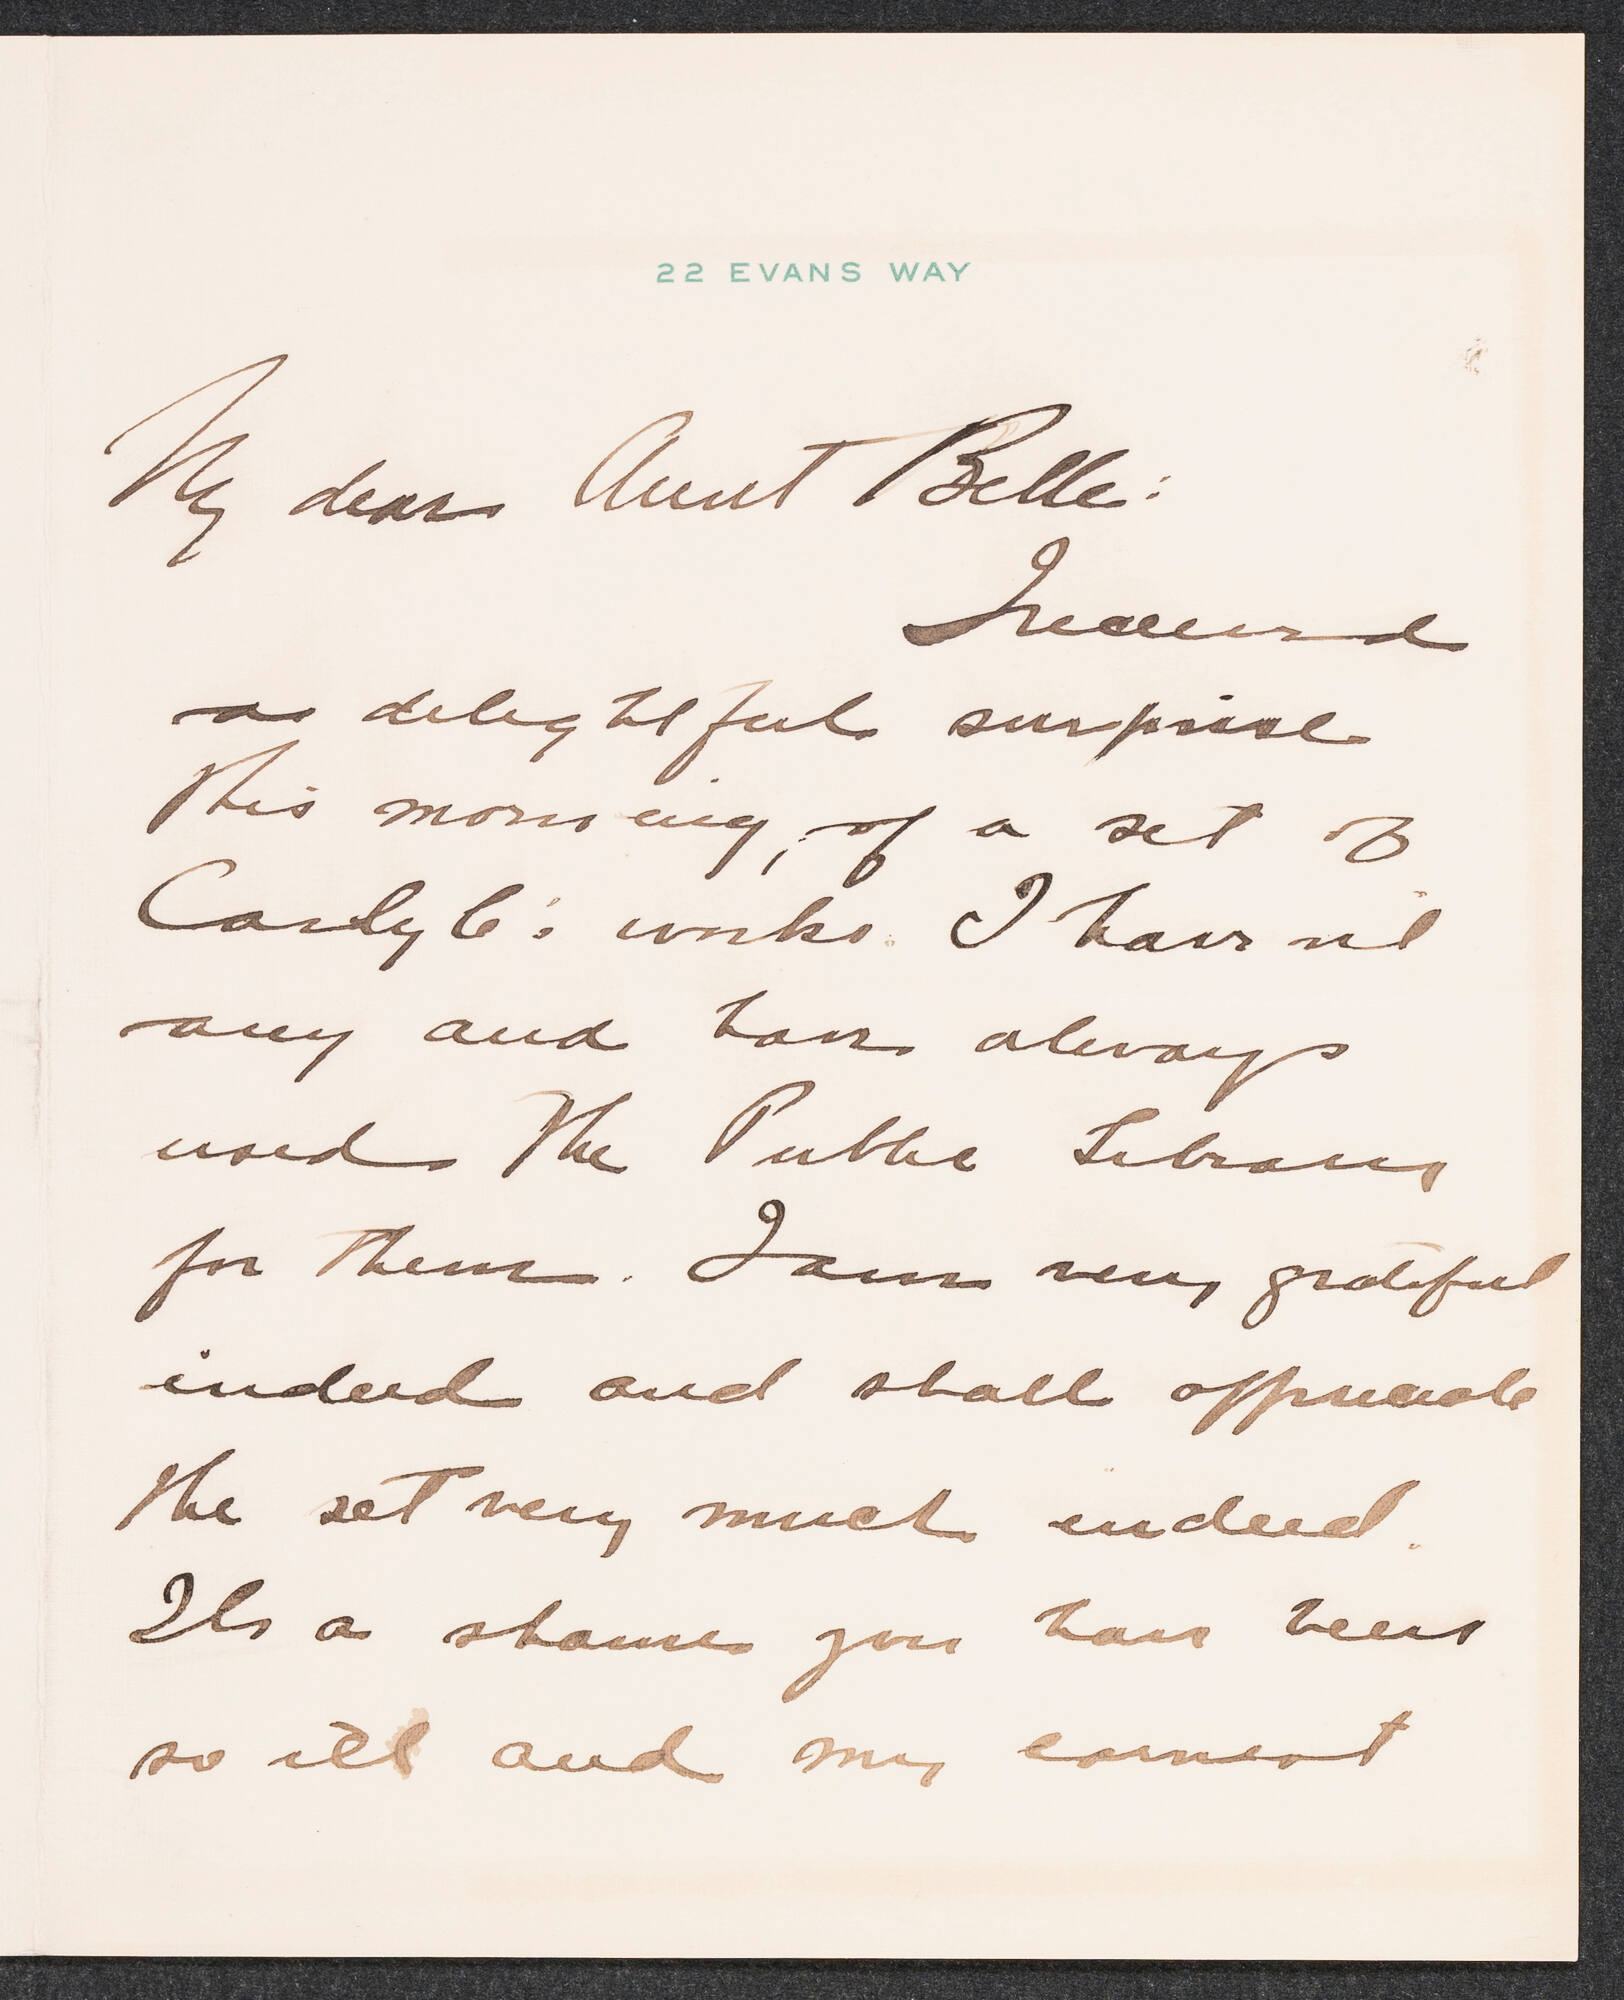 22 EVANS WAY
My dear Aunt Belle:
I received
a delightful surprise
this morning, of a set of
Carlyle's works. I haven't
any and have always
used the Public Library
for them. I am very grateful
indeed and shall appreciate
the set very much indeed.
Its a shame you have been
so ill and my earnest